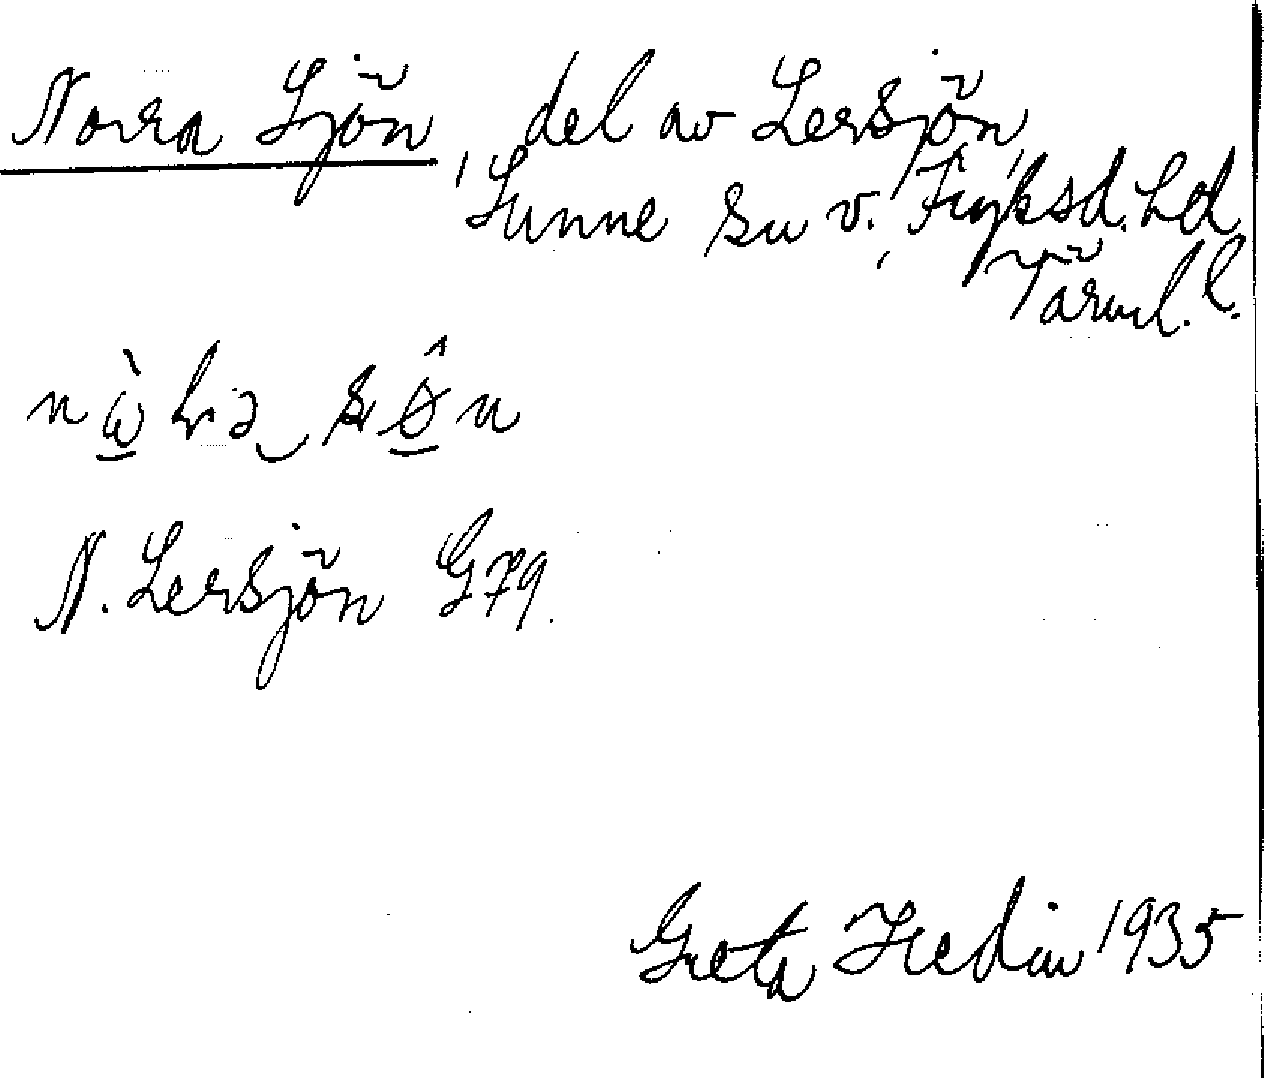 Norra Sjön, del av Lersjön,
Sunne sn v. Fryksd. hd
Värml. l.
N. Lersjön G79.
Greta Hedin 1935